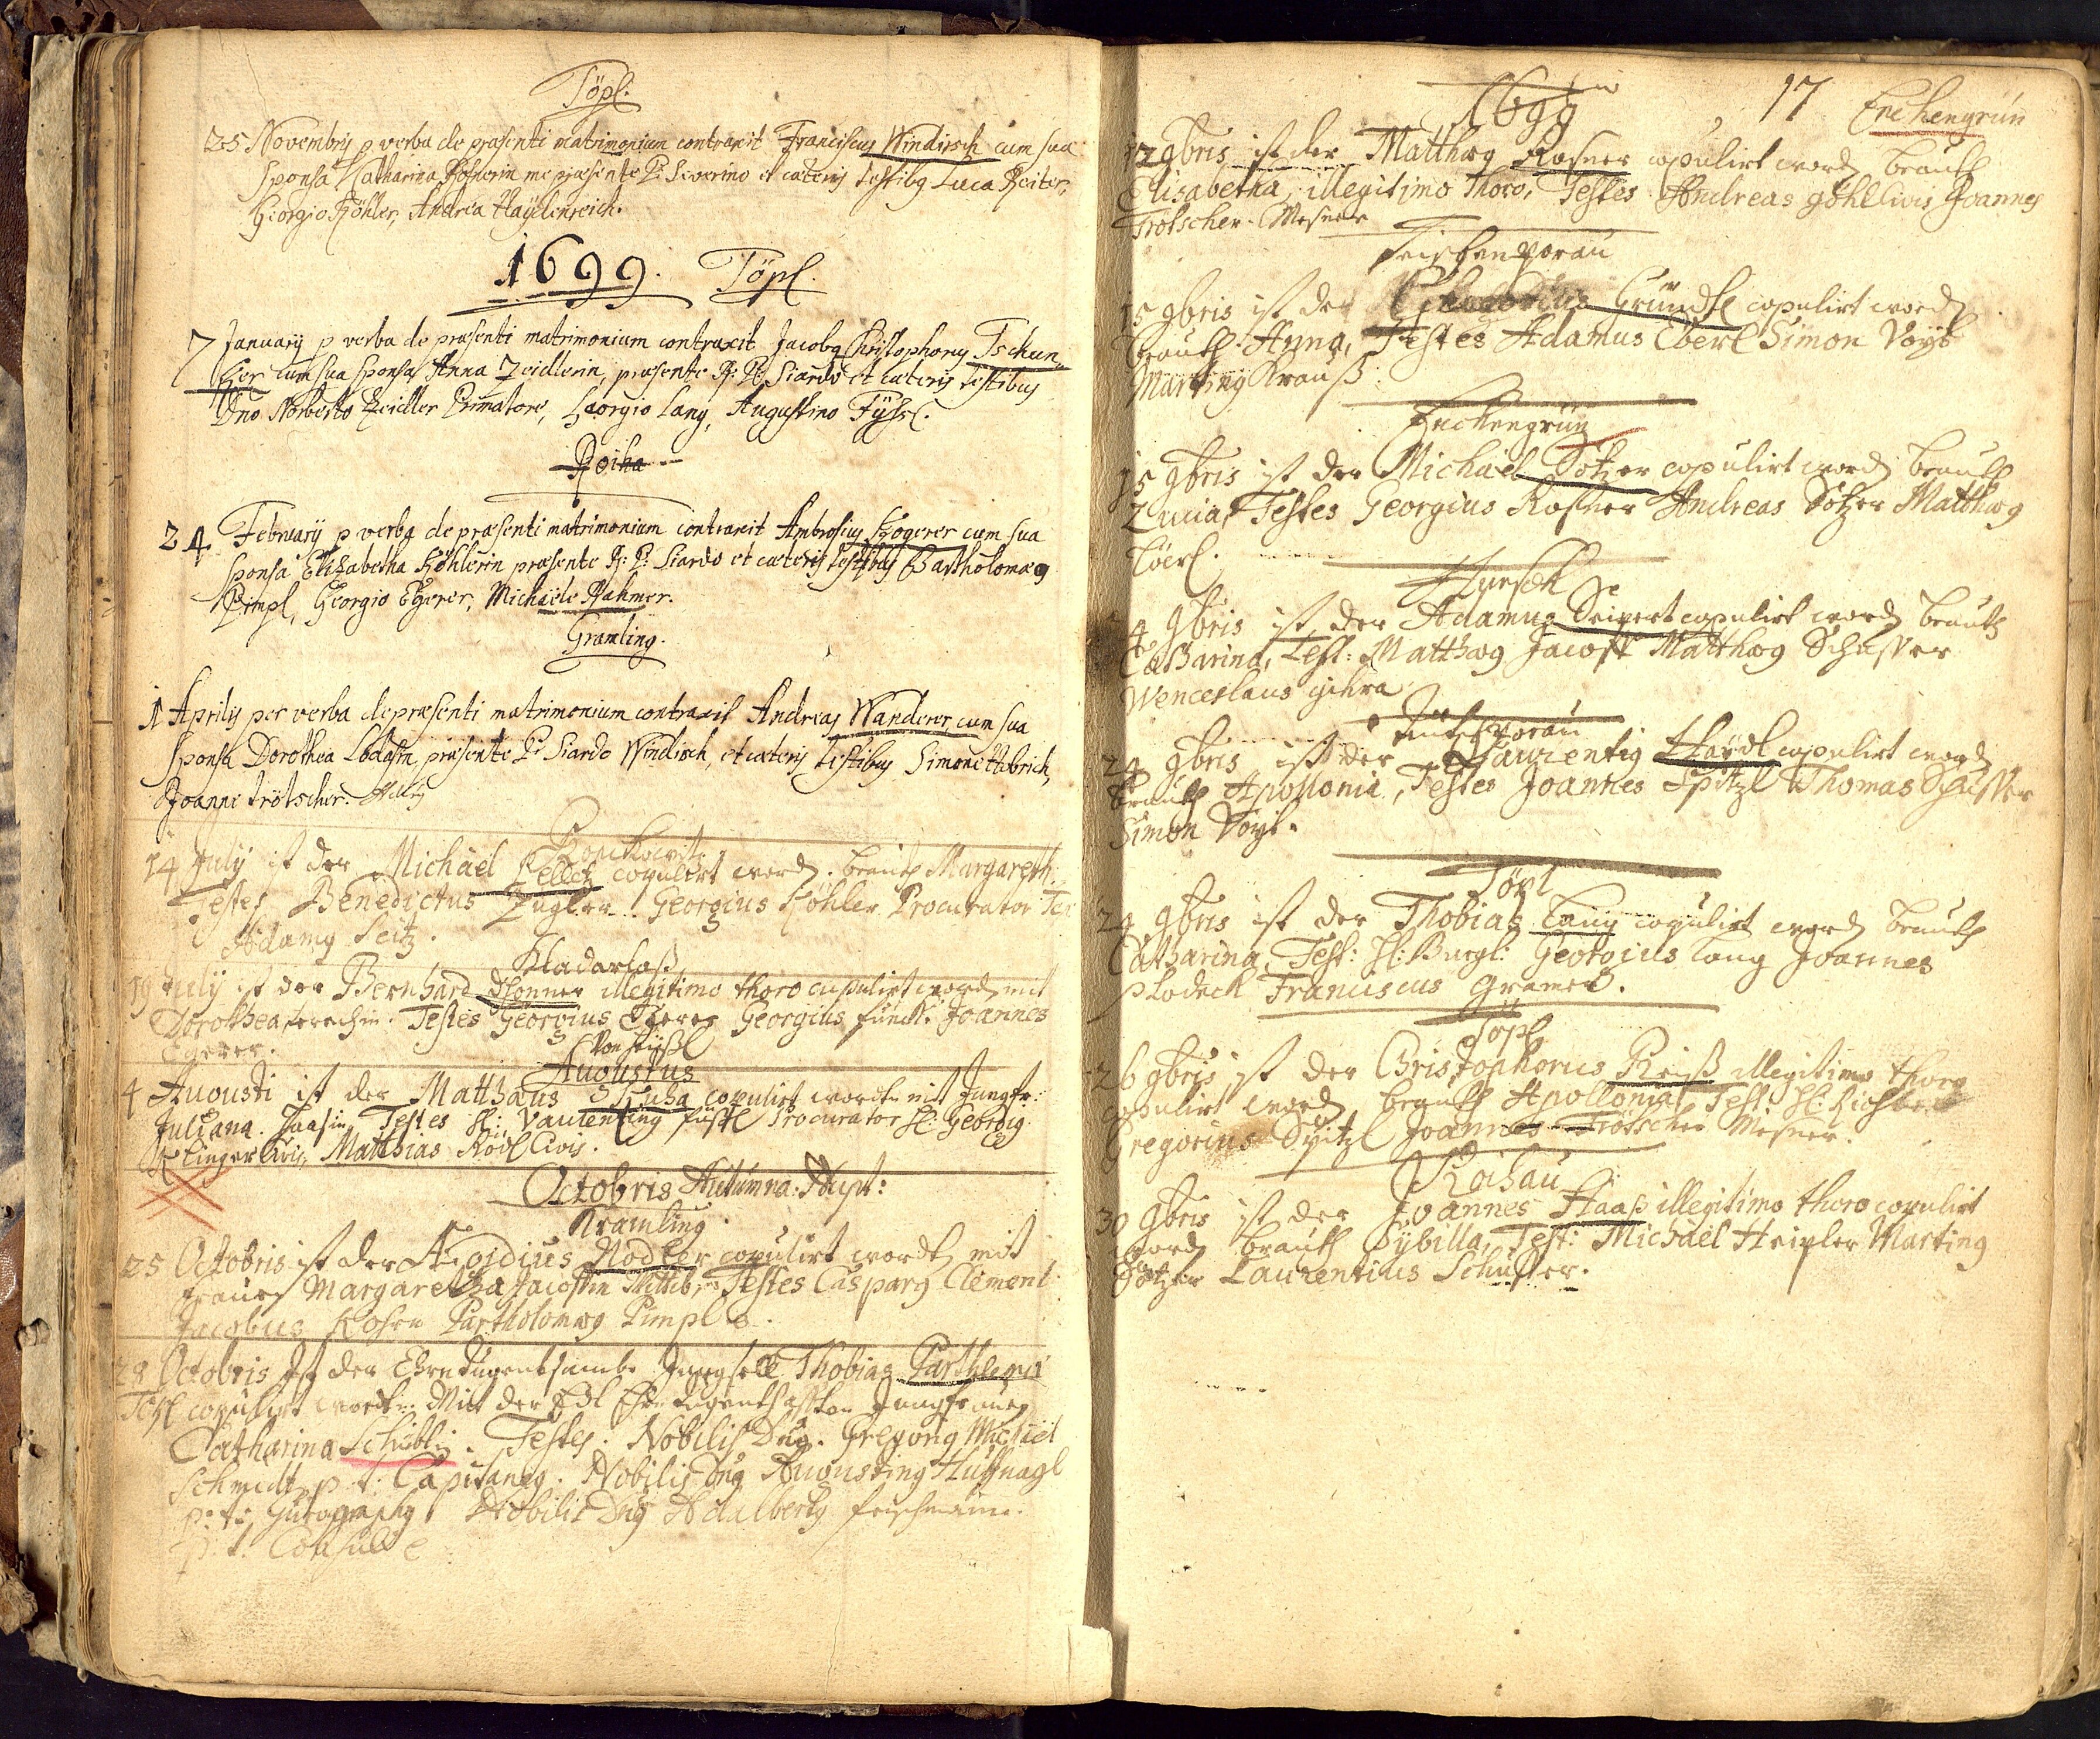 Töpl.
25 Novembris p verba de præsenti matrimonium contraxit Franciscus Windirsch cum sua
sponsa Katharina Rosnerin me præsente P: Severino et cæteris testibg Luca Reiter,
Georgio Köhler, Andrea Haydenreich.
1699. Töpl.
7 January p verba de præsenti matrimonium contraxit Jacobg Christophorg Tschun
Her cum sua sponsa Anna Zeidlerin, præsente R: P: Siardo et cæteris testibus
Dno Norberto Zeidler Primatore, Georgio Lang, Augustino
Roiha
24 February p verba de præsenti matrimonium contraxit Ambrosius Kogerer cum sua
sponsa Elizabetha Köhlerin præsente R: P: Siardo et cæteris testibus Bartholomæo
Pimpl, Georgio Egerer, Michaele Rahmer.
Gramling.
1 Aprilis per verba de præsenti matrimonium contraxit Andreas Wanderer cum sua
sponsa Dorothea præsente P: Siardo Windisch, et cæteris testibus Simone Habrich,
Joanne Trötscher.
14 July ist der Michael copulirt word. brauth Margareth.
Testes Benedictus Zügler. Georgius Köhler Procurator
Adamg Seitz.
Hladarlaß
19 July ist der Bernhard illegitimo thoro cupulirt word mit
Dorothea Testes Georgius Georgius Joannes
Egerer.
Augustus
4 Augusti ist der Matthäus Kuha copulirt worden mit Jungfr:
Juliana. Haasin Testes H: Procurator H: Georgig
Klinger Civis, Matthias Rödl Civis.
Octobris Autumna: Nupt:
Kramling.
25 Octobris ist der Aegidius Nodler copulirt word mit
frauen Margaretha Wittib, Testes Casparg Clement
Jacobus Bartholomæg Pimpl.
28 Octobris Ist der Ehrntugentsambe Junggsell Thobias
Töpl copulirt word: Mitt der Edl Ehrn tugenthafften Jungfrauen
Catharina Testes. Nobilis Dng. Gregorig Michael
Schmidt p. t. Capitaneg. Nobilis Dng Augusting Huffnagl
p: t: Nobilis Dng Adalbertg
p. t. Consule
1699 17 Enckengrün
12 9bris ist der Matthæg Rosner copulirt word brauth
Elisabetha, illegitimo thoro, Testes Andreas Civis Joannes
Trötscher Mesner
15 9bris ist der Gründl copulirt word
brauth Anna, Testes Adamus Eberl Simon Voyt
Marting Krauß.
Enckengrün
15 9bris ist der Michäel Sötzer copulirt word brauth
Lucia, Testes Georgius Rosner Andreas Sötzer Matthæg
Löerl.
Hursch
24 9bris ist der Adamus Seipert copulirt word brauth
Catharina, Test: Matthæg Jacobß Matthæg Schuster
Wenceslaus
24 9bris ist der Laurentig Haydl copulirt word
brauth Apollonia, Testes Joannes Spitzl Thomas Schuster
Simon Voyt.
Töpl
24 9bris ist der Thobias Lang copulirt word brauth
Catharina, Test: H: Burgl: Georgius Lang Joannes
Plodeck Franciscus Gramer.
Töpl
26 9bris ist der Christophorus Reiß illegitimo thoro
copulirt word brauth Apollonia Test: H: Richter
Gregorius Spitzl Joannes Trötscher Mesner.
Rahau
30 9bris ist der Joannes Haaß illegitimo thoro copulirt
word brauth Sybilla, Test: Michäel Heigler Marting
Sötzer Laurentius Schuster.